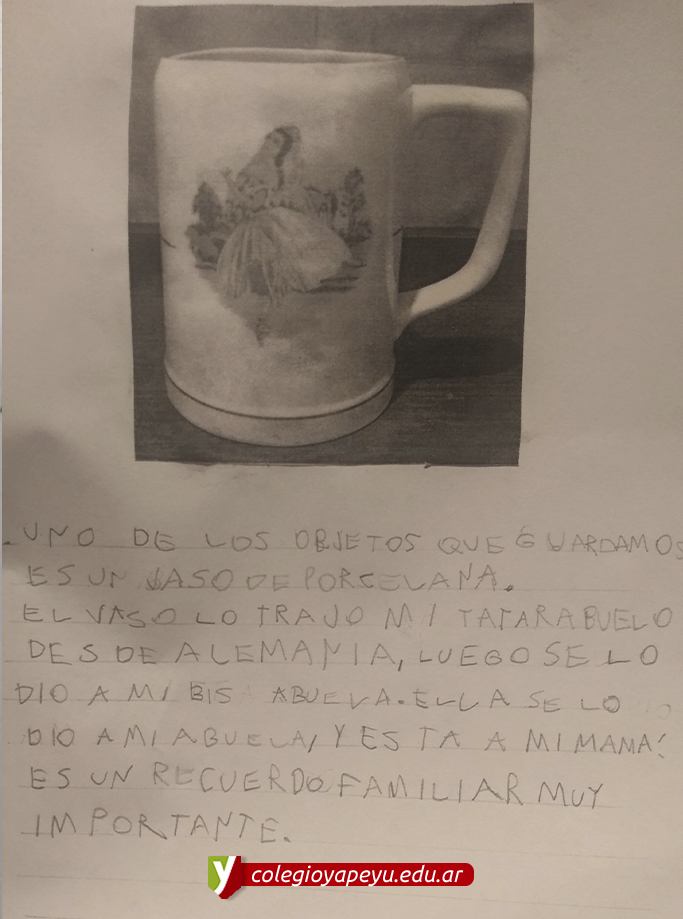 .UNO DE LOS OBJETOS QUE GUARDAMOS
ES UN VASO DE PORCELANA.
EL VASO LO TRAJO MI TATARABUELO
DESDE ALEMANIA, LUEGO SE LO
DIO A MI BIS ABUELA. ELLA SE LO
DIO A MI ABUELA, Y ESTA A MI MAMA!
ES UN RECUERDO FAMILIAR MUY
IMPORTANTE.
y colegioyapeyu.edu.ar